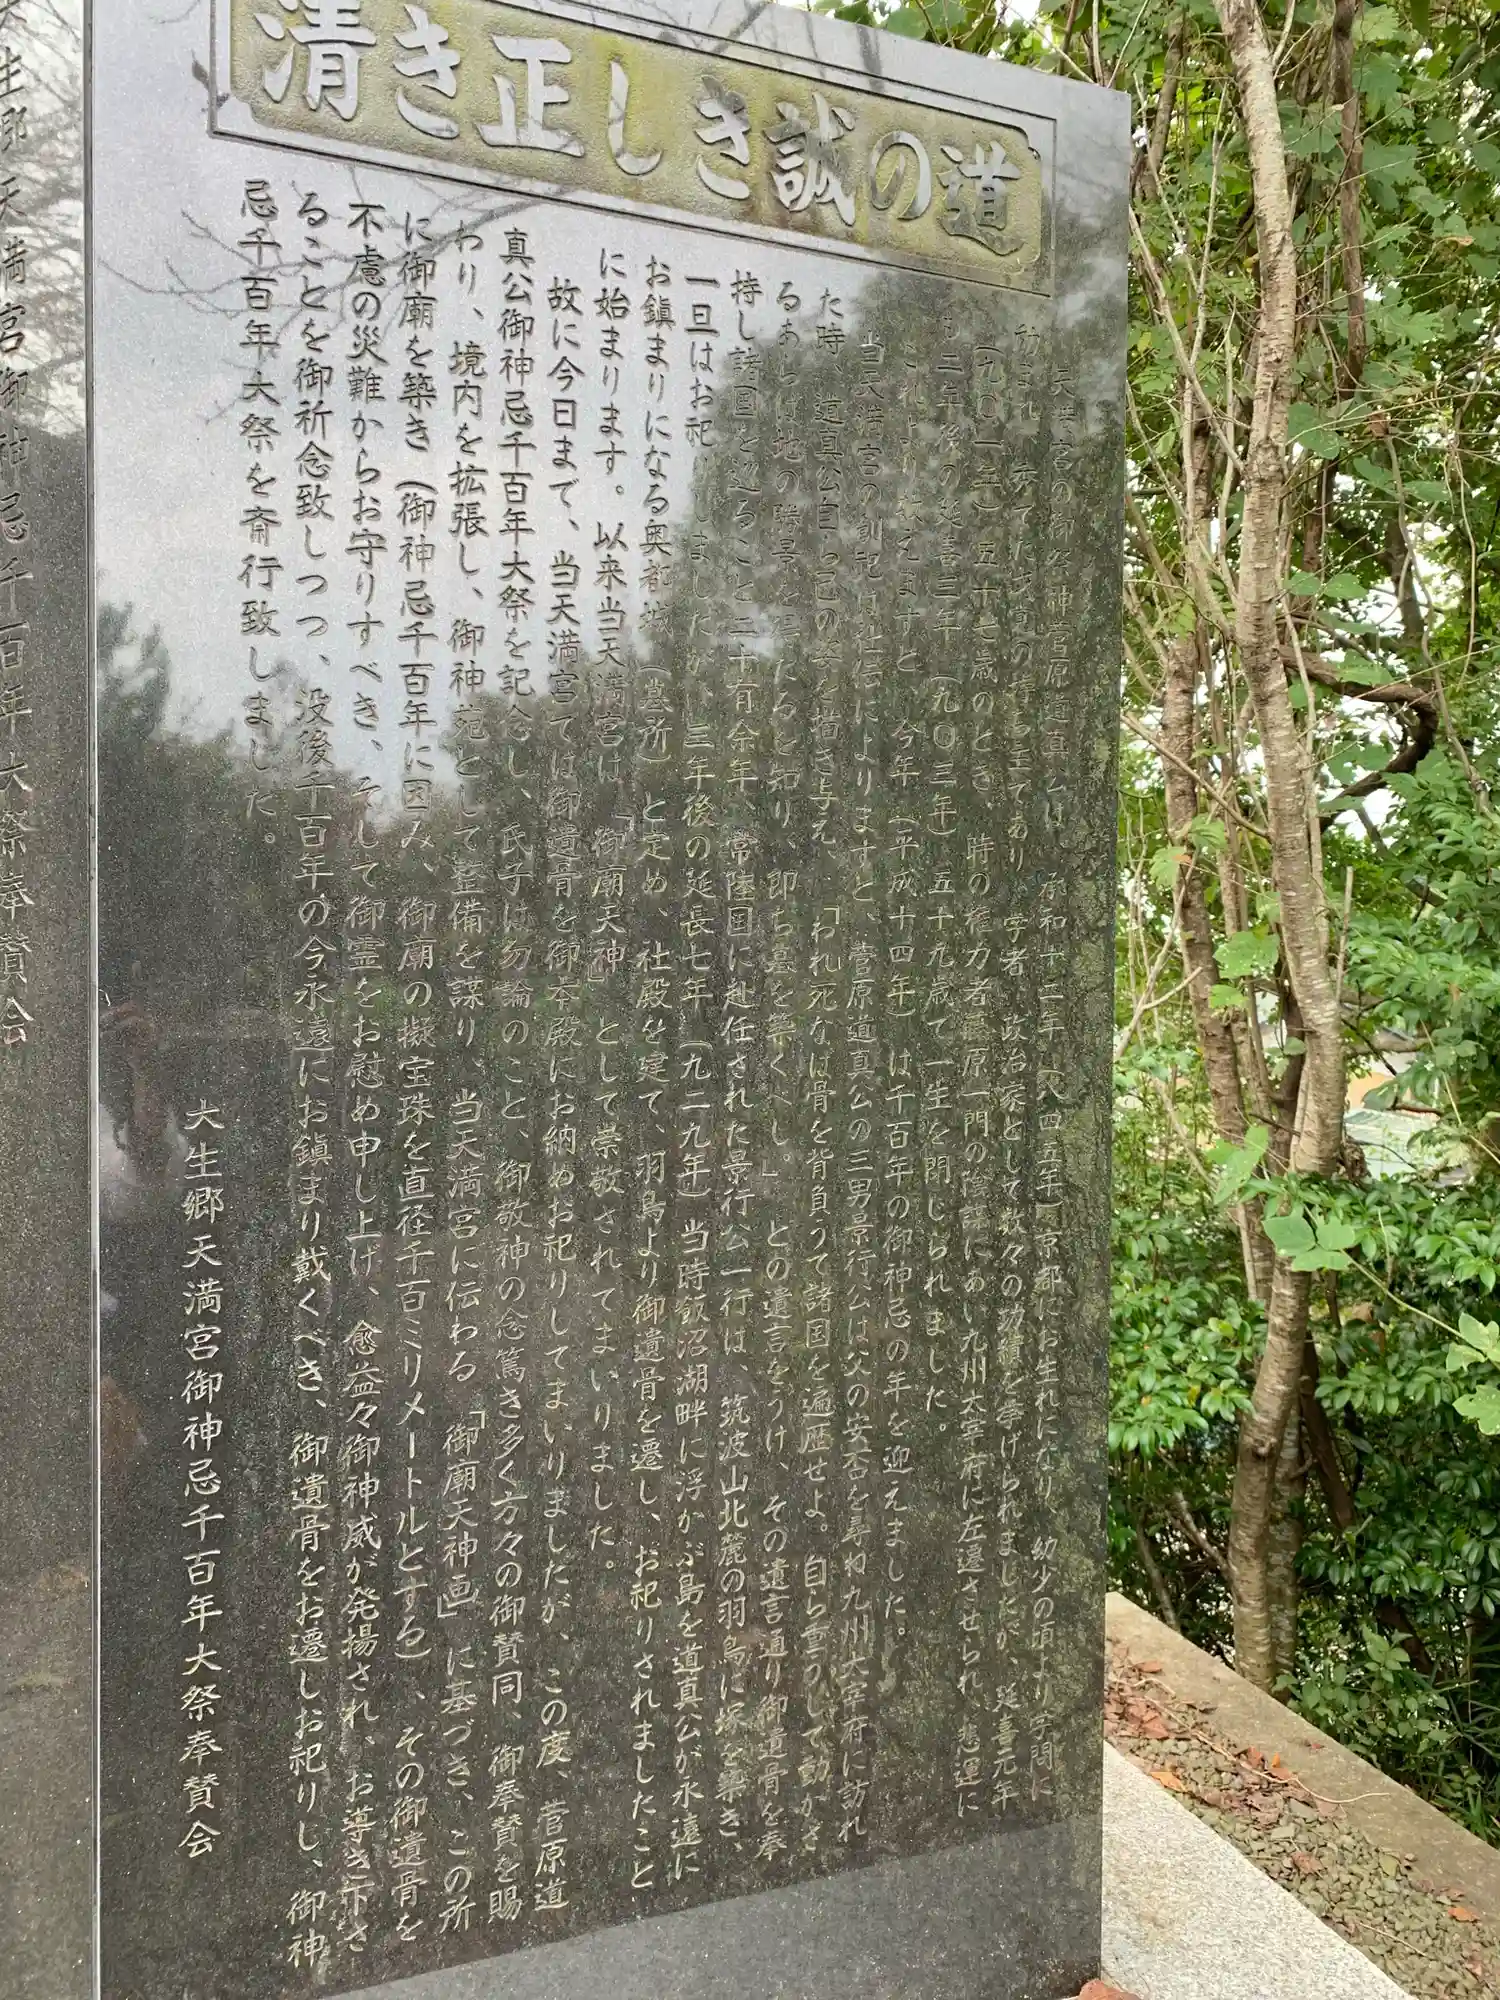 清き正しき誠の道
天満宮の御祭神菅原道真公は、承和十二年(八四五年)京都にお生れになり、幼少の頃より学問に
励まれ、
学者、政治家として数々の功績を挙げられましたが、延喜元年
(九〇一年)五十七歳のとき、時の権力者藤原一門の陰謀にあい九州大宰府に左遷させられ、悲運に
も二年後の延喜三年(九〇三年)五十九歳で一生を閉じられました。
これより数えますと、今年(平成十四年)は千百年の御神忌の年を迎えました。
当天満宮の創祀は社伝によりますと、菅原道真公の三男景行公は父の安否を尋ね九州大宰府に訪れ
た時、道真公自ら己の姿を描き与え、「われ死なば骨を背負うて諸国を遍歴せよ。自ら重うして動かざ
るあらば地の勝景を得たると知り、即ち墓を築くべし。」との遺言をうけ、その遺言通り御遺骨を奉
持し諸国を辺ること二十有余年、常陸国に赴任された景行公一行は、筑波山北麓の羽鳥に塚を築き、
一旦はお祀りしましたが、三年後の延長七年(九二九年)当時飯沼湖畔に浮かぶ島を道真公が永遠に
お鎮まりになる奥都城(墓所)と定め、社殿を建て、羽鳥より御遺骨を遷し、お祀りされましたこと
に始まります。以来当天満宮は「御廟天神」として崇敬されてまいりました。
故に今日まで、当天満宮では御遺骨を御本殿にお納めお祀りしてまいりましたが、この度、菅原道
真公御神忌千百年大祭を記念し、氏子は勿論のこと、御敬神の念篤き多く方々の御賛同、御奉賛を賜
わり、境内を拡張し、御神苑として整備を謀り、当天満宮に伝わる「御廟天神画」に基づき、この所
に御廟を築き(御神忌千百年に因み、御廟の擬宝珠を直径千百ミリメートルとする)、その御遺骨を
不慮の災難からお守りすべき、そして御霊をお慰め申し上げ、愈益々御神威が発揚され、お導き下さ
ることを御祈念致しつつ、没後千百年の今永遠にお鎮まり戴くべき、御遺骨をお遷しお祀りし、御神
忌千百年大祭を斎行致しました。
大生郷天満宮御神忌千百年大祭奉賛会
生郷天満宮御神忌千百年大祭奉賛会